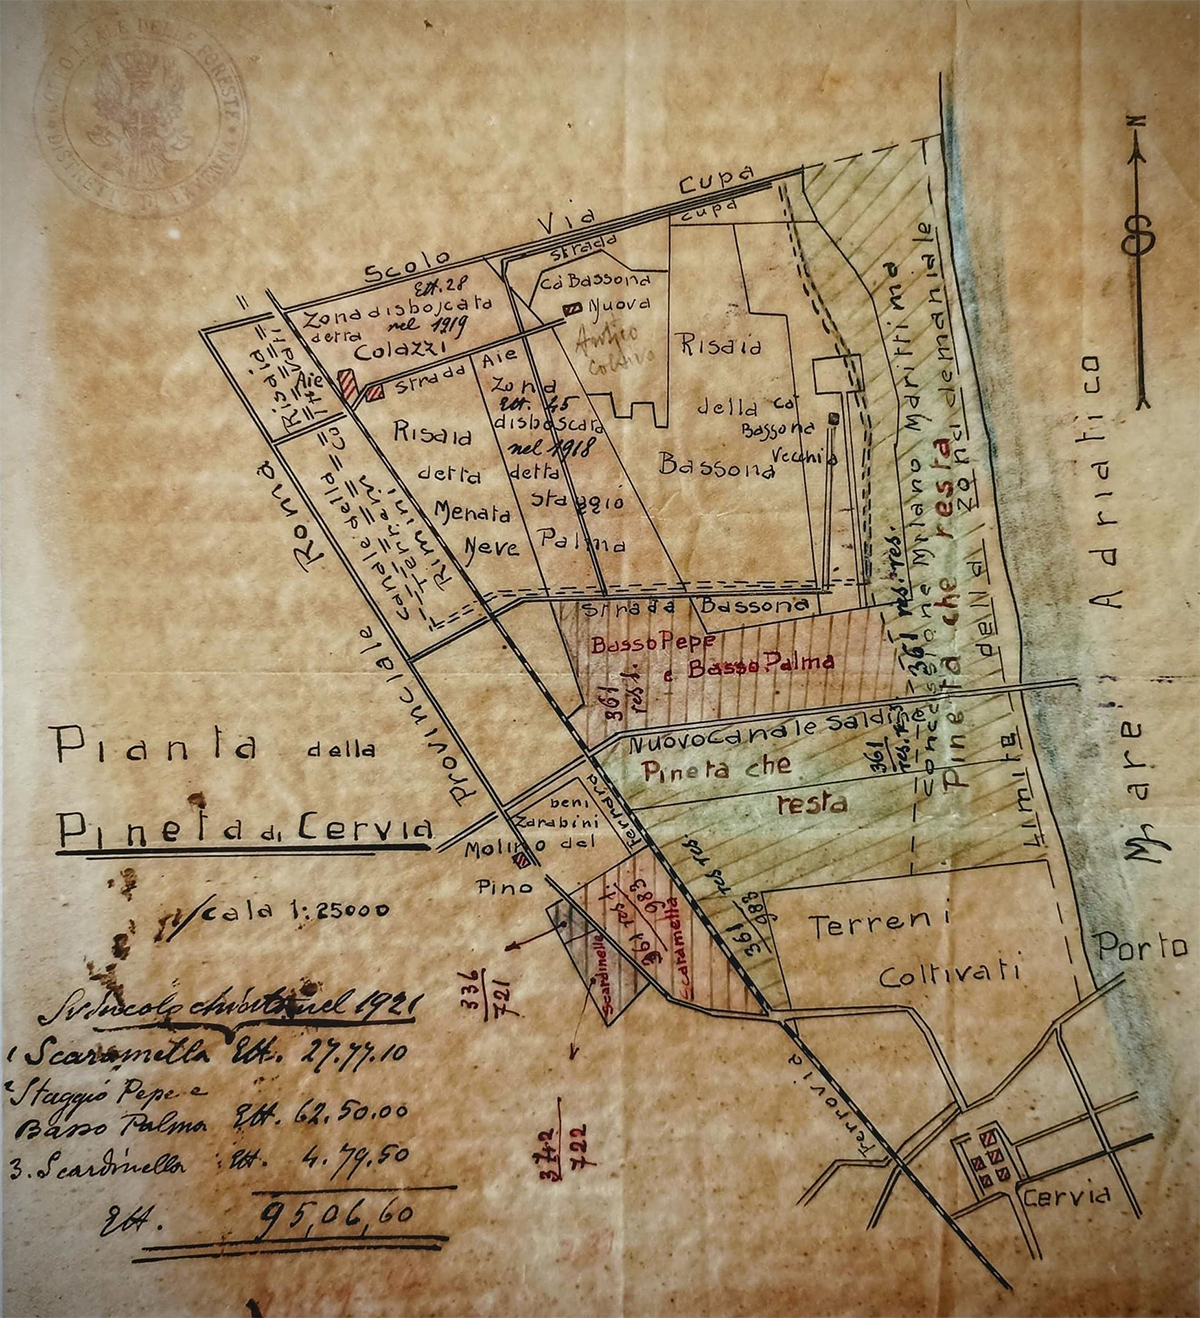 N
Scolo Via Cupa
strada cupa
Ett. 28
Zona disboscata
detta nel 1919
Colazzi
Ca' Bassona
Nuova
Antico
Coltivo
Risaia
Aie
strada Aie
Zona
Ett. 45
disboscata
nel 1918
detta
Staggio
Palma
Risaia
detta
Menata
Neve
Risaia
della
Bassona
Ca'
Bassona
Vecchia
canale della
Rimini
Roma
Provinciale
Concessione Milano Marittima
Pineta che resta
Limite della Zona demaniale
Mare Adriatico
strada Bassona
Basso Pepe
e Basso Palma
361
res. 1.
361 res. res.
361
Nuovo Canale Saldi
Pineta che
resta
beni
Zarabini
Molino del
Pino
Ferrara
361
983
res res.
361 res 1.
983
Scaramella
Scardinella
336
721
342
722
Terreni
Coltivati
Porto
Ferrovia
Cervia
Pianta della
Pineta di Cervia
Scala 1:25000
Svincolo chiesto nel 1921
1 Scaramella Ett. 27.77.10
2 Staggio Pepe e
Basso Palma Ett. 62.50.00
3. Scardinella Ett. 4.79.50
Ett. 95,06,60